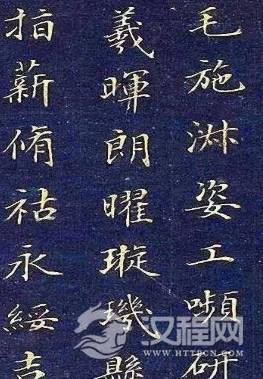 毛施淑姿工嚬研
羲暉朗曜璇璣懸
指薪脩祜永綏吉
汉程网
WWW.HTTPCN.COM